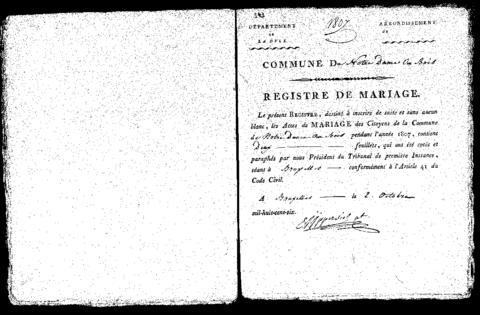 1807
DÉPARTEMENT
DE
LA DYLE.
ARRONDISSEMENT
de
COMMUNE De Notre Dame au Bois
REGISTRE DE MARIAGE.
Le présent REGISTRE, destiné à inscrire de suite et sans aucun
blanc, les Actes de MARIAGE des Citoyens de la Commune
de Notre Dame au Bois pendant l'année 1807, contient
Deux feuillets, qui ont été cotés et
paraphés par nous Président du Tribunal de première Instance,
séant à Bruxelles conformément à l'Article 41 du
Code Civil.
A Bruxelles le 2. Octobre
mil-huit-cent-six.